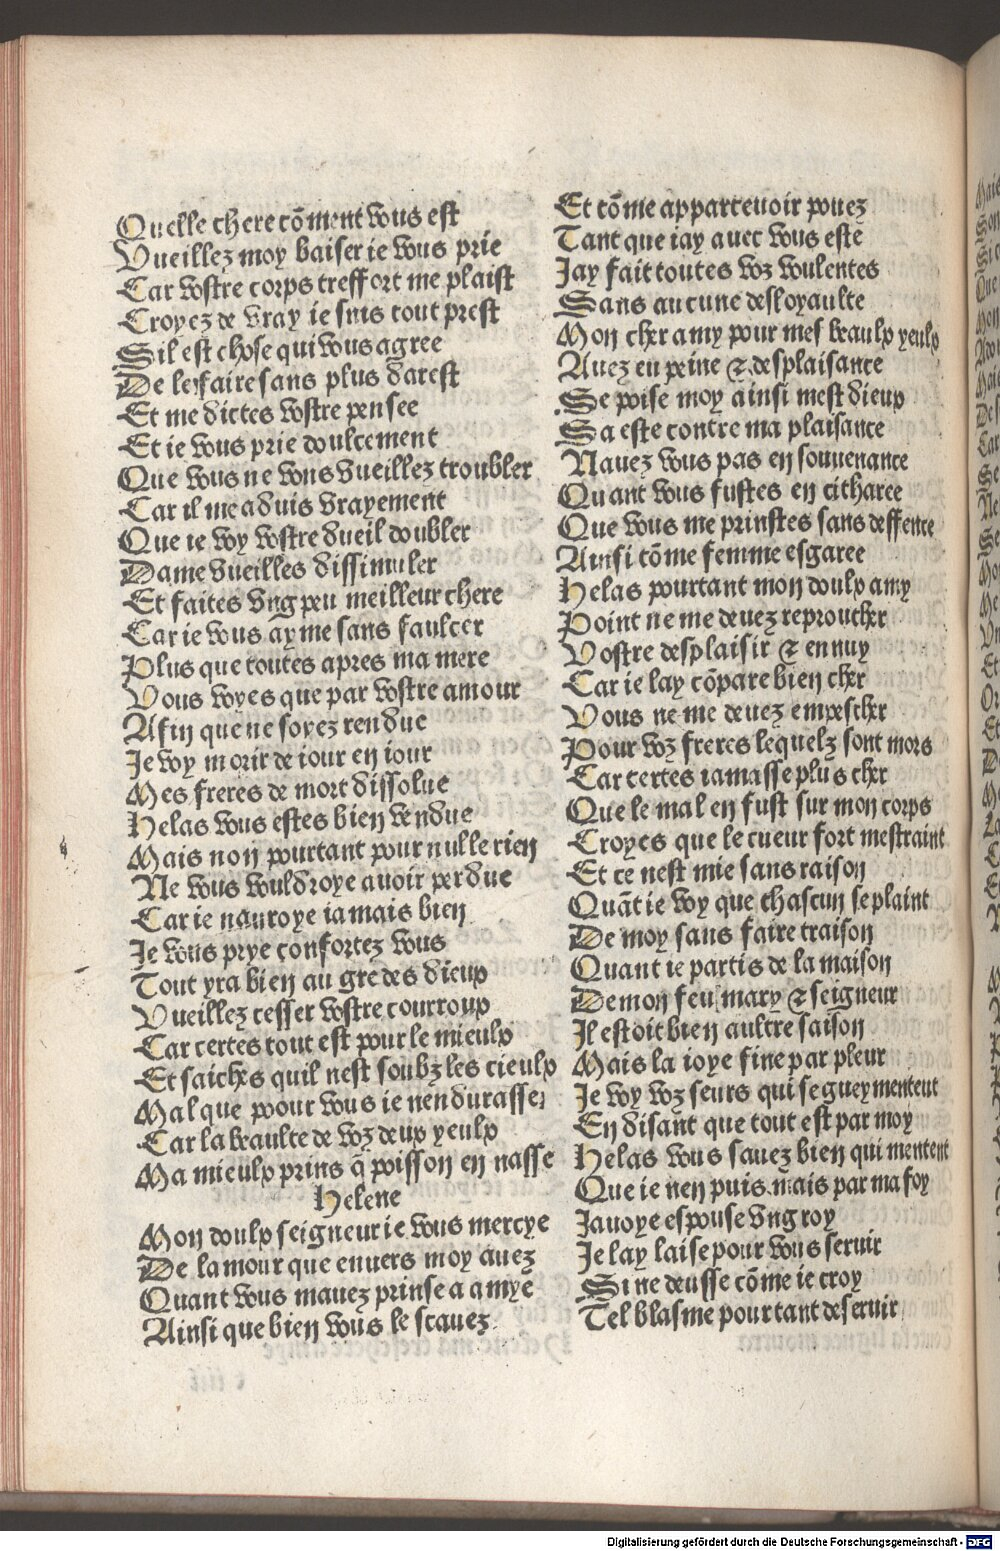 Quelle chere cõment vous est
Vueillez moy baiser ie vous prie
Car vostre corps treffort me plaist
Croyez de vray ie suis tout prest
Sil est chose qui vous agree
De le faire sans plus darest
Et me dictes vostre pensee
Et ie vous prie doulcement
Que vous ne vons vueillez troubler
Car il me aduis vrayement
Que ie voy vostre dueil doubler
Dame vueilles dissimuler
Et faites vng peu meilleur chere
Car ie vous ayme sans faulcer
Plus que toutes apres ma mere
Vous voyes que par vostre amour
Afin que ne soyez rendue
Je voy morir de iour en iour
Mes freres de mort dissolue
Helas vous estes bien vendue
Mais non pourtant pour nulle rien
Ne vous vouldroye auoir perdue
Car ie nauroye iamais bien
Je vous prye confortez vous
Tout yra bien au gre des dieux
Vueillez cesser vostre courroux
Car certes tout est pour le mieulx
Et saiches quil nest soubz les cieulx
Mal que poour vous ie nendurasse
Car la beaulte de voz deux yeulx
Ma mieulx prins q̃ poisson en nasse
Helene
Mon doulx seigneur ie vous mercye
De lamour que enuers moy auez
Quant vous mauez prinse a amye
Ainsi que bien vous le scauez
Et cõme appartenoir pouez
Tant que iay auec vous este
Jay fait toutes voz voulentes
Sans aucune desloyaulte
Mon cher amy pour mes beaulx yeulx
Auez eu peine & desplaisance
Se poise moy ainsi mest dieux
Sa este contre ma plaisance
Nauez vous pas en souuenance
Quant vous fustes en citharee
Que vous me prinstes sans deffence
Ainsi cõme femme esgaree
Helas pourtant mon doulx amy
Point ne me deuez reproucher
Vostre desplaisir & ennuy
Car ie lay cõpare bien cher
Vous ne me deuez empescher
Pour voz freres lequelz sont mors
Car certes iamasse plus cher
Que le mal en fust sur mon corps
Croyes que le cueur fort mestraint
Et ce nest mie sans raison
Quãt ie voy que chascun se plaint
De moy sans faire traison
Quant ie partis de la maison
De mon feu mary & seigneur
Il estoit bien aultre saison
Mais la ioye fine par pleur
Je voy voz seurs qui se gueymentent
En disant que tout est par moy
Helas vous sauez bien qui mentent
Que ie nen puis mais par ma foy
Jauoye espouse vng roy
Je lay laise pour vous seruir
Si ne deusse cõme ie croy
Tel blasme pourtant deseruir
Digitalisierung gefördert durch die Deutsche Forschungsgemeinschaft - DFG